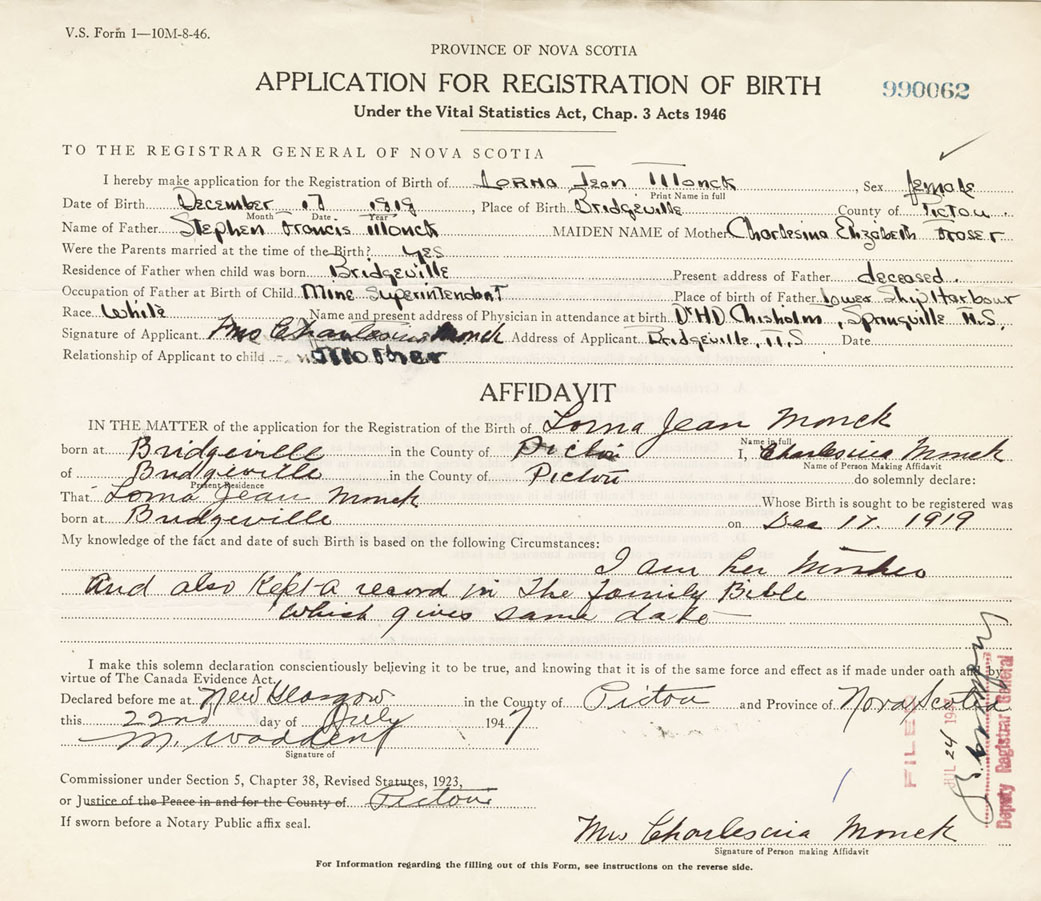 V.S. Form 1—10M-8-46.
PROVINCE OF NOVA SCOTIA
APPLICATION FOR REGISTRATION OF BIRTH
990062
Under the Vital Statistics Act, Chap. 3 Acts 1946
TO THE REGISTRAR GENERAL OF NOVA SCOTIA
I hereby make application for the Registration of Birth of Lorna Jean Monck, Sex female
Print Name in full
Date of Birth December 17 1919, Place of Birth Bridgeville County of Pictou
Month Date Year
Name of Father Stephen Francis Monck MAIDEN NAME of Mother Charlesina Elizabeth Fraser
Were the Parents married at the time of the Birth? yes
Residence of Father when child was born Bridgeville Present address of Father deceased
Occupation of Father at Birth of Child Mine Superintendent Place of birth of Father Lower Ship Harbour
Race White Name and present address of Physician in attendance at birth Dr HD Chisholm, Springville N.S.
Signature of Applicant Mrs Charlesina Monck Address of Applicant Bridgeville, N.S Date
Relationship of Applicant to child Mother
AFFIDAVIT
IN THE MATTER of the application for the Registration of the Birth of Lorna Jean Monck
Name in full
born at Bridgeville in the County of Pictou I, Charlesina Monck
Name of Person Making Affidavit
of Bridgeville in the County of Pictou do solemnly declare:
Present Residence
That Lorna Jean Monck Whose Birth is sought to be registered was
born at Bridgeville on Dec 17 1919
My knowledge of the fact and date of such Birth is based on the following Circumstances:
I am her Mother
And also Kept a record in The family Bible
which gives same date
I make this solemn declaration conscientiously believing it to be true, and knowing that it is of the same force and effect as if made under oath and by
virtue of The Canada Evidence Act.
Declared before me at New Glasgow in the County of Pictou and Province of Nova Scotia
this 22nd day of July 1947
M. Wadden
Signature of
Commissioner under Section 5, Chapter 38, Revised Statutes, 1923,
or Justice of the Peace in and for the County of Pictou
If sworn before a Notary Public affix seal.
Mrs Charlesina Monck
Signature of Person making Affidavit
For Information regarding the filling out of this Form, see instructions on the reverse side.
FILED
JUL 24
Deputy Registrar General